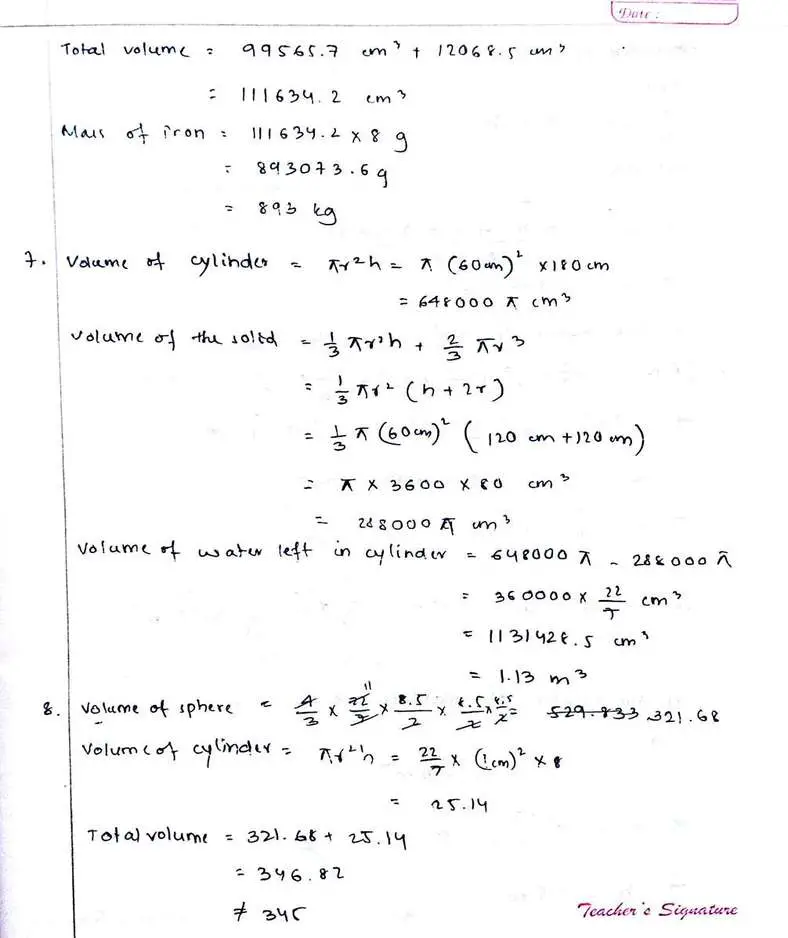 Date :
Total volume = 99565.7 cm³ + 12068.5 cm³
= 111634.2 cm³
Mass of iron = 111634.2 × 8 g
= 893073.6 g
= 893 kg
7. Volume of cylinder = πr²h = π (60cm)² ×180 cm
= 648000 π cm³
Volume of the solid = 1/3 πr²h + 2/3 πr³
= 1/3 πr² (h + 2r)
= 1/3 π (60cm)² (120 cm +120 cm)
= π × 3600 × 80 cm³
= 288000 π cm³
Volume of water left in cylinder = 648000 π - 288000 π
= 360000 × 22/7 cm³
= 1131428.5 cm³
= 1.13 m³
8. Volume of sphere = 4/3 × 22/7 11 × 8.5/2 × 8.5/2 × 8.5/2 = 529.833 321.68
Volume of cylinder = πr²h = 22/7 × (1cm)² × 8
= 25.14
Total volume = 321.68 + 25.14
= 346.82
≠ 345
Teacher's Signature